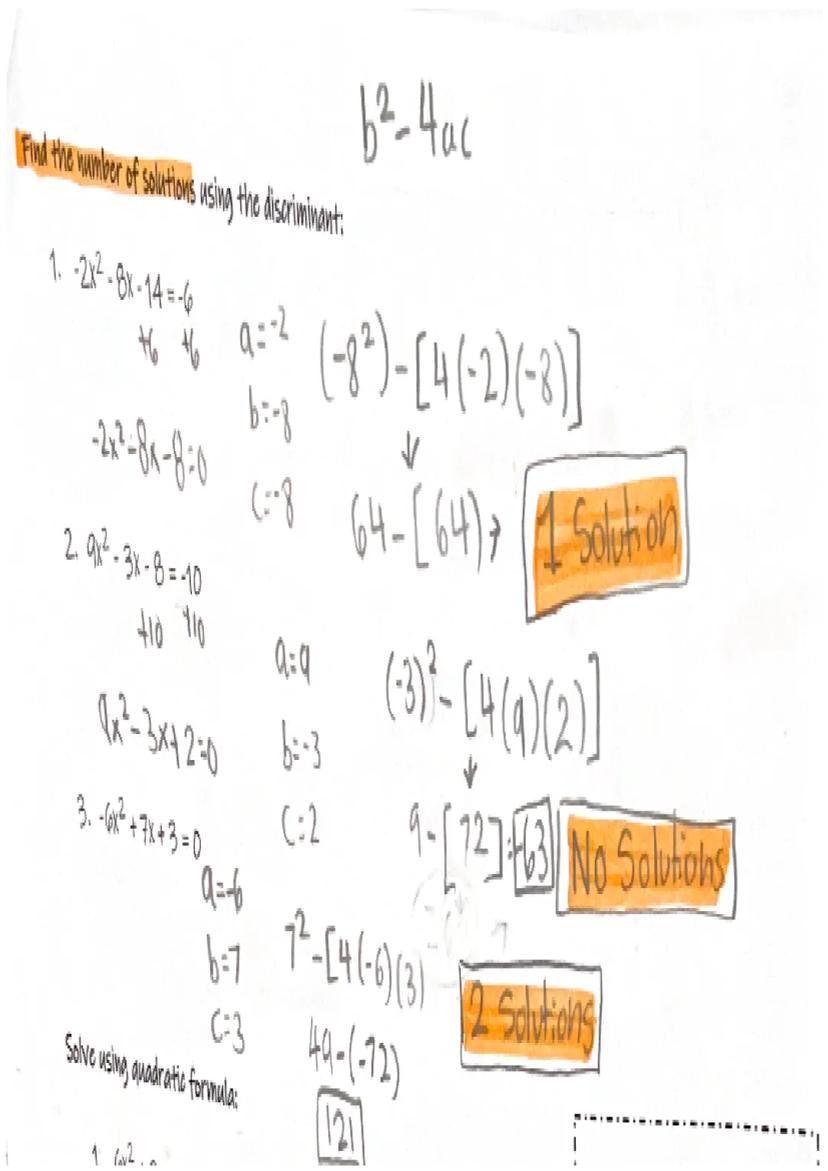 b² - 4ac
Find the number of solutions using the discriminant:
1. -2x² - 8x - 14 = -6
+6 +6
-2x² - 8x - 8 = 0
a = -2
b = -8
c = -8
(-8²) - [4(-2)(-8)]
↓
64 - [64) →
1 Solution
2. 9x² - 3x - 8 = -10
+10 +10
9x² - 3x + 2 = 0
a = 9
b = -3
c = 2
(-3)² - [4(9)(2)]
↓
9 - [72] = -63
No Solutions
3. -6x² + 7x + 3 = 0
a = -6
b = 7
c = 3
7² - [4(-6)(3)
49 - (-72)
121
2 Solutions
Solve using quadratic formula:
1. 6x²